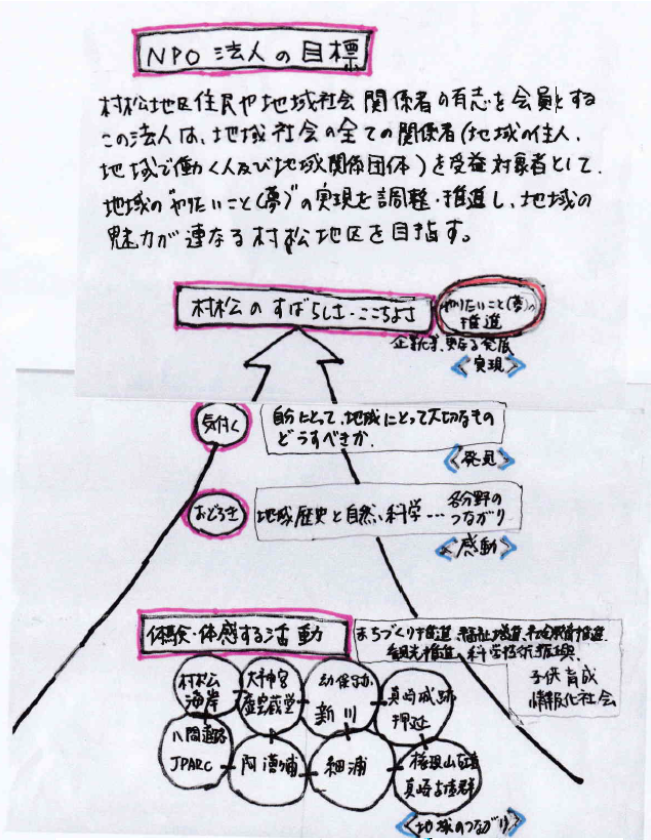 NPO 法人の目標
村松地区住民や地域社会関係者の有志を会員とする
この法人は、地域社会の全ての関係者(地域の住人、
地域で働く人及び地域関係団体)を受益対象者として、
地域の“やりたいこと(夢)”の実現を調整・推進し、地域の
魅力が連なる村松地区を目指す。
村松のすばらしさ・ここちよさ
やりたいこと(夢)の
推進
更なる発展
《実現》
気付く
自分にとって、地域にとって大切なもの
どうすべきか、
《発見》
おどろき
地域歴史と自然、科学…各分野の
つながり
《感動》
体験・体感する活動
まちづくり推進、福祉増進、社会教育推進
観光推進、科学技術振興、
子供育成
情報化社会
村松
海岸
大神宮
虚空蔵堂
幼保跡
新川
真崎城跡
押延
八間道路
JPARC
阿漕ヶ浦
細浦
権現山古墳
真崎古墳群
《地域のつながり》